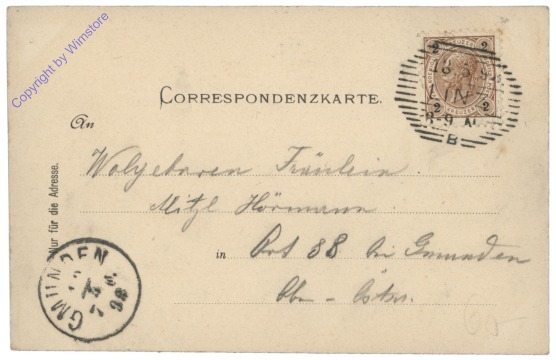 Copyright by Wimstore
2 2
2 2
8-9 N.
B
CORRESPONDENZKARTE.
An
Nur für die Adresse.
Wolgeboren Fräulein
Mitzl Hörmann
in Ort 88 bei Gmunden
Ob - Östr.
GMUNDEN
60-